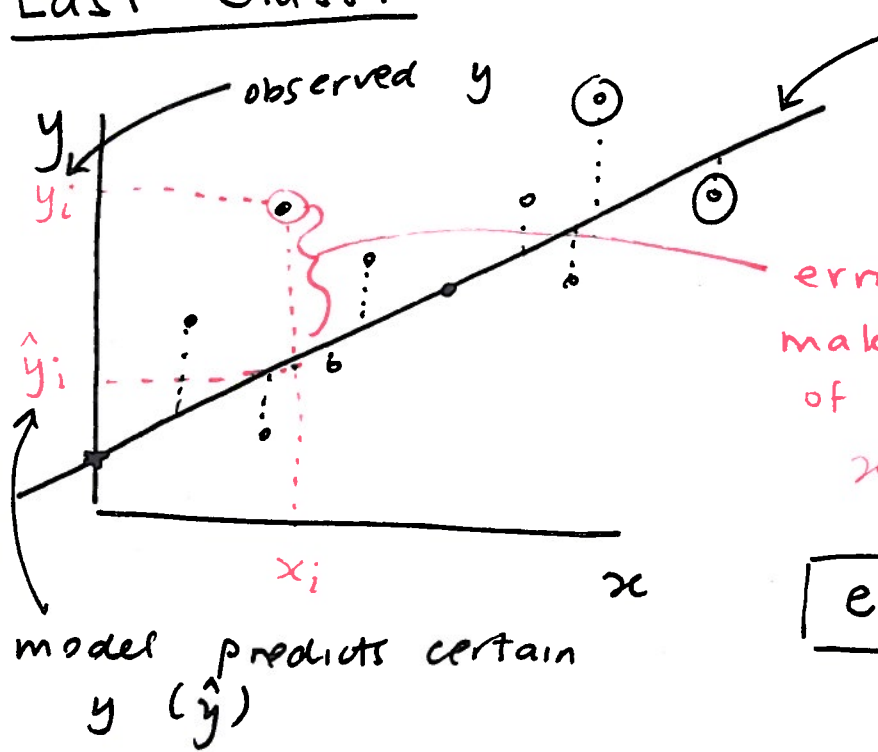 Last Class:
observed y
y
yi
ŷi
b
err
mak
of
x
xi
x
e
model predicts certain
y (ŷ)